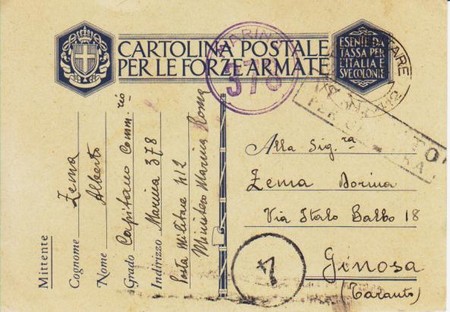 CARTOLINA POSTALE
PER LE FORZE ARMATE
ESENTE DA
TASSA PER
L'ITALIA E
SUE COLONIE
MARINA
378
Mittente
Cognome Zema
Nome Alberto
Grado Capitano Comm.rio
Indirizzo Marina 378
Posta Militare 412
Ministero Marina Roma
Alla Sig.ra
Zema Dorina
Via Italo Balbo 18
Ginosa
(Taranto)
4